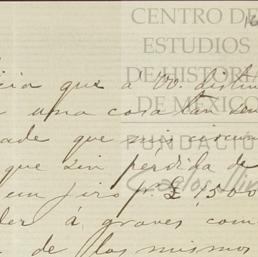 CENTRO DE
ESTUDIOS
DE HISTORIA
DE MÉXICO
FUNDACIÓN
Carlos
que á Vd.
una cosa tan
que mis
que sin perdida de
un giro p. £ 1,500
á graves com
de los mismos